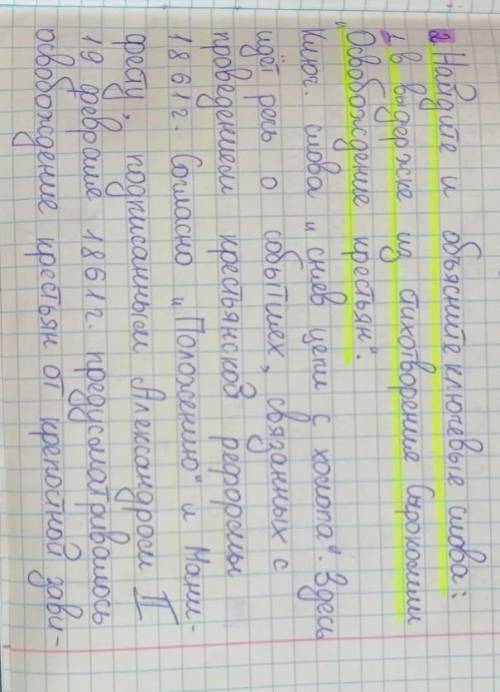 2. Найдите и объясните ключевые слова:
1 в выдержке из стихотворения Сырокомли
"Освобождение крестьян".
Ключ. слова "сняв цепи с холопа". Здесь
идёт речь о событиях, связанных с
проведением крестьянской реформы
1861г. Согласно "Положению" и Мани-
фесту, подписанным Александром II
19 февраля 1861г. предусматривалось
освобождение крестьян от крепостной зави-